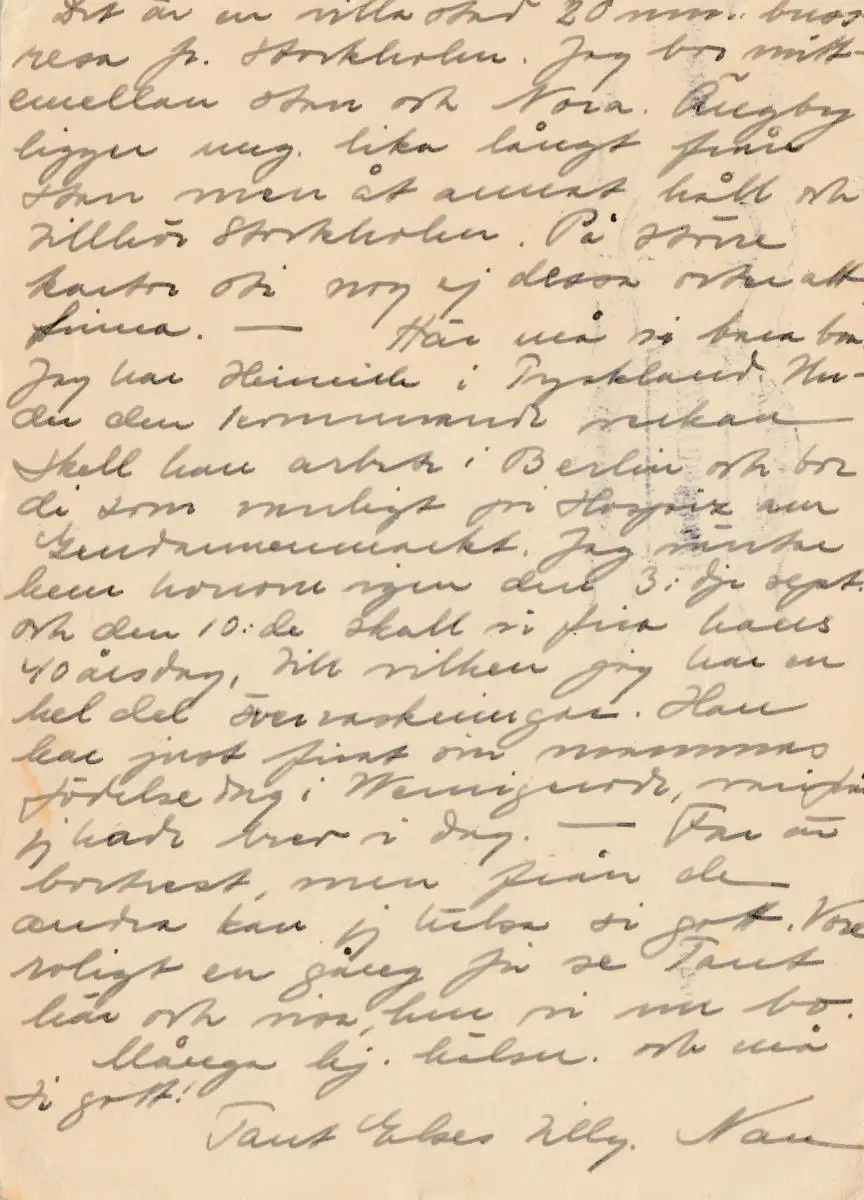 Det är en villa stad 20 min. buss
resa fr. Stockholm. Jag bor mitt-
emellan stan och Nora. Ängby
ligger ung. lika långt från
stan men åt annat håll och
tillhör Stockholm. På större
kartor stå nog ej dessa orter att
finna. — Här må vi bara bra
Jag har Heinrich i Tyskland. Un-
der den kommande veckan
skall han arbeta i Berlin och bor
då som vanligt på Hospiz am
Gendarmenmarkt. Jag väntar
hem honom igen den 3:dje sept.
och den 10:de skall vi fira hans
40 årsdag, till vilken jag har en
hel del överraskningar. Han
har just firat sin mammas
födelsedag i Wernigerode, varifrån
jg hade brev i dag. — Far är
bortrest, men från de
andra kan jg hälsa så gott. Vore
roligt en gång få se Tant
här och visa, hur vi nu bo.
Många hj. hälsn. och må
så gott!
Tant Elses tillg. Nan